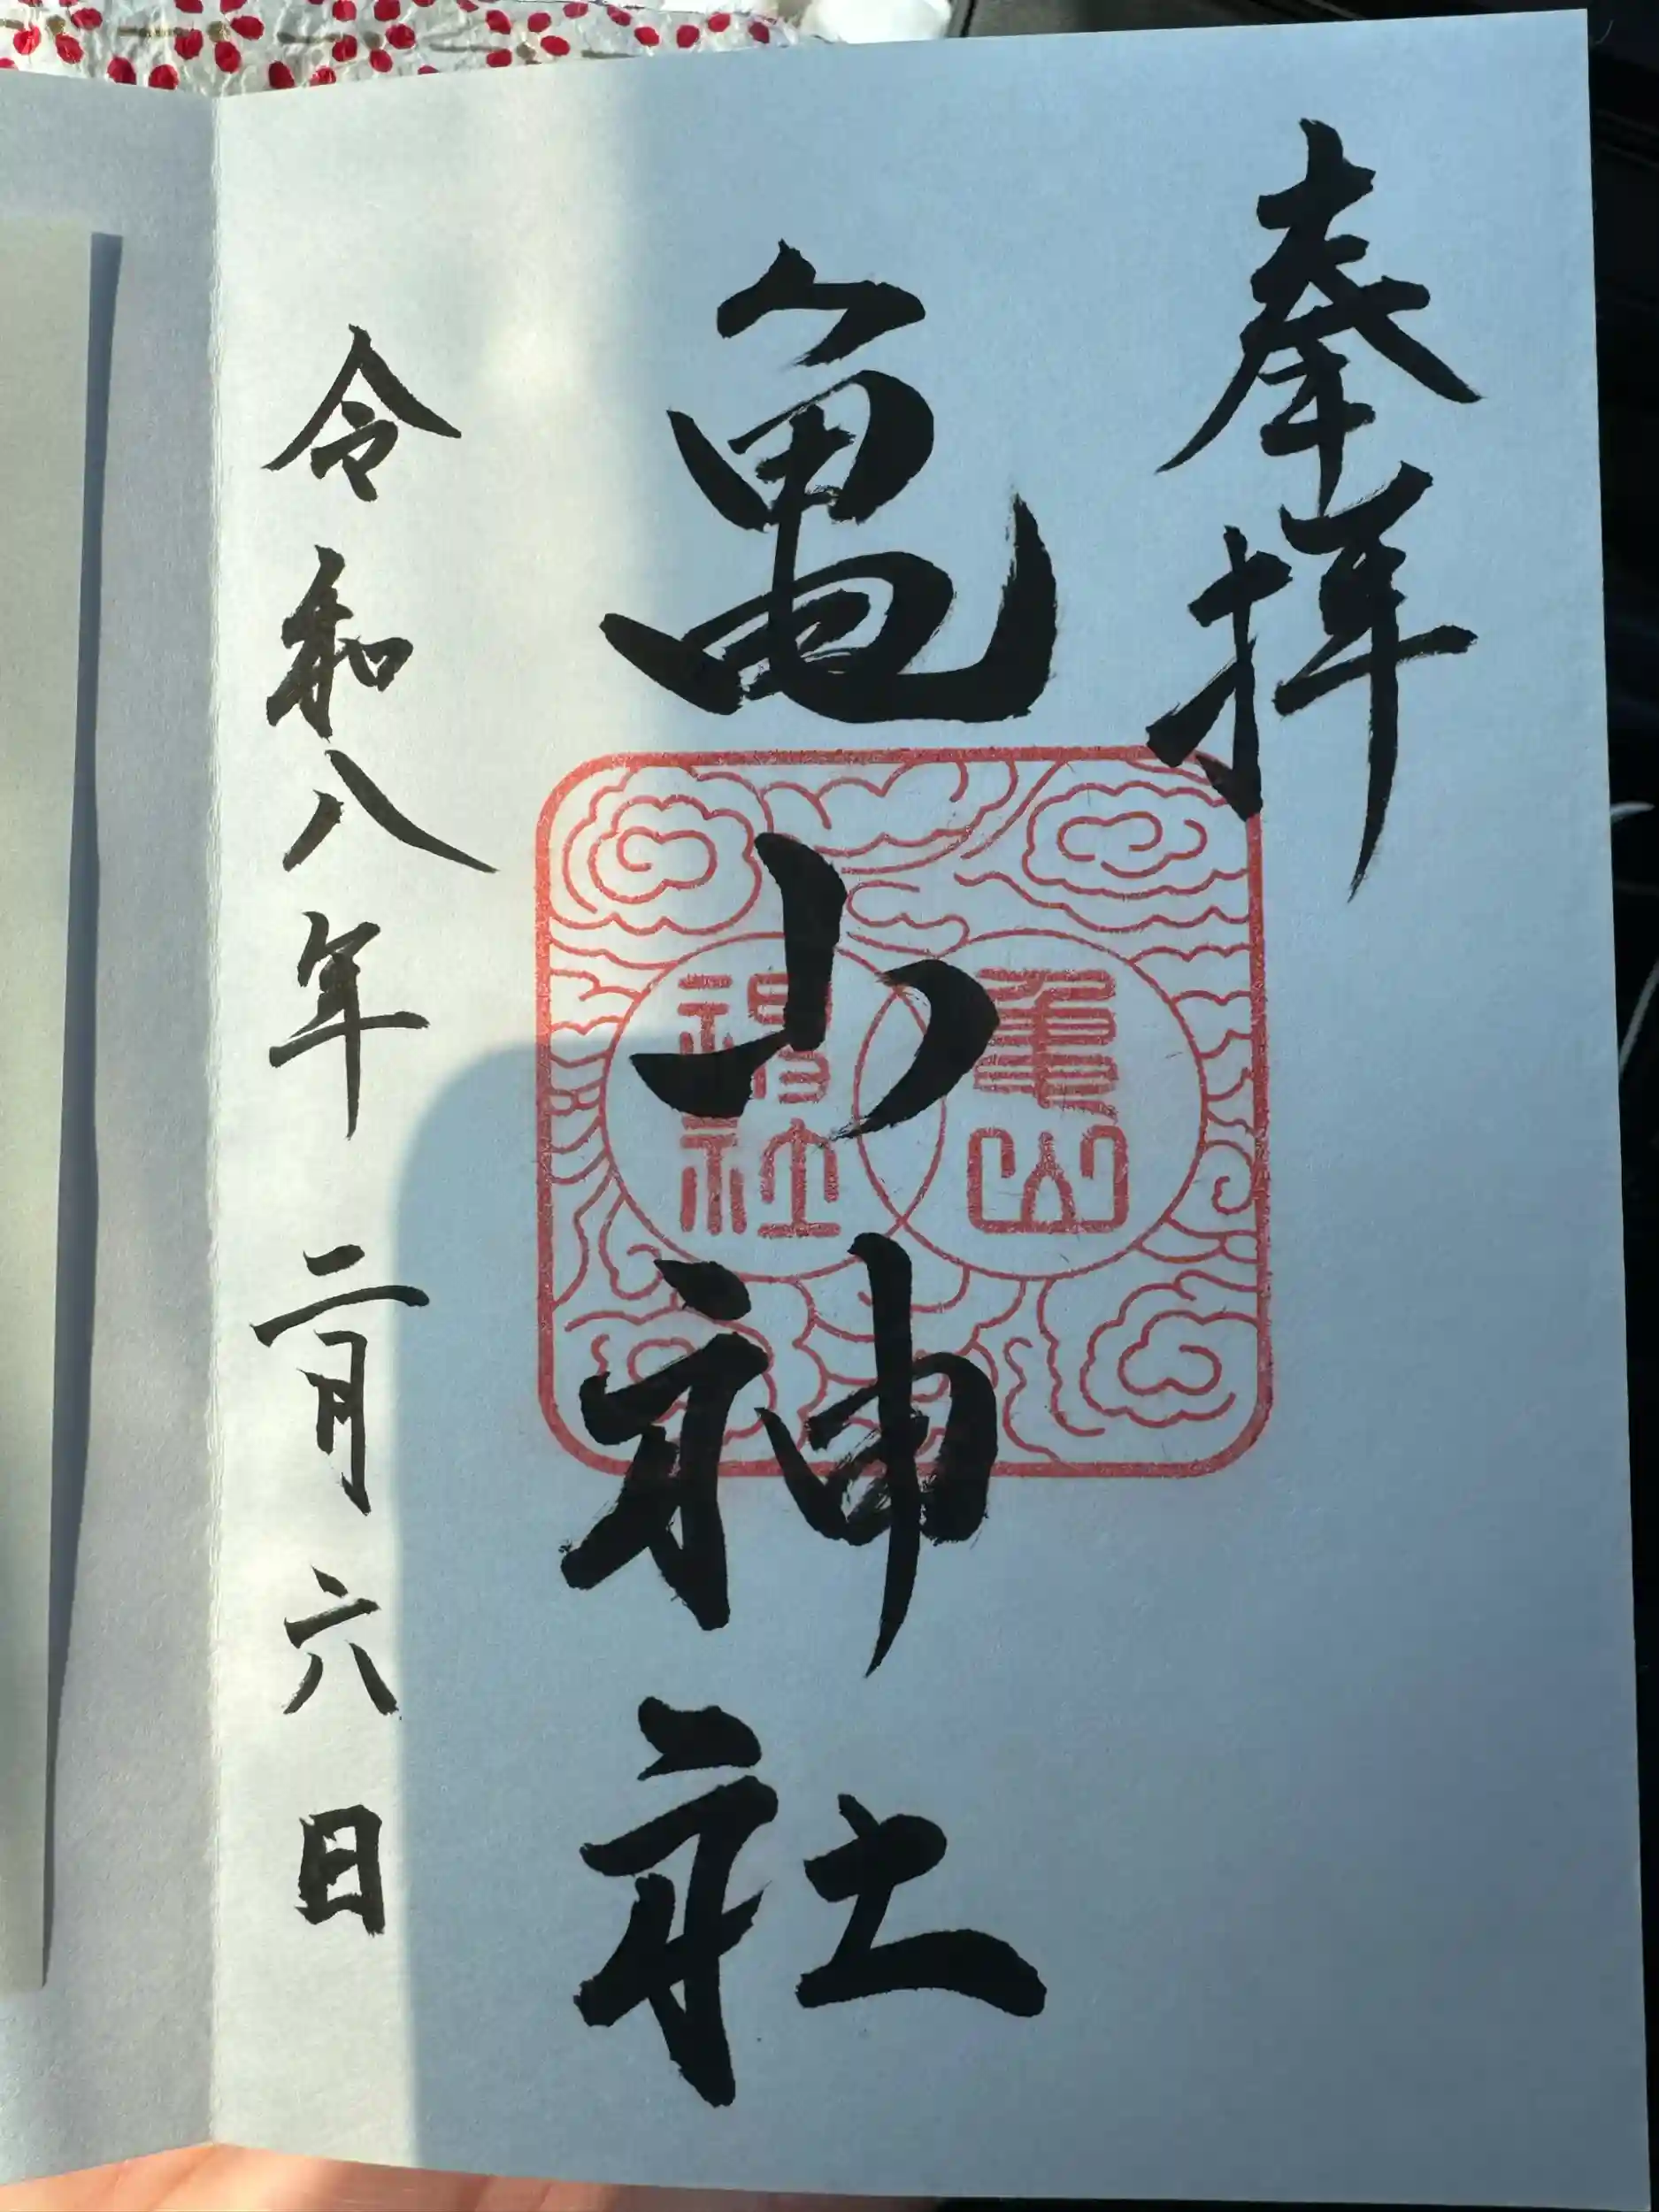 奉拝
亀山神社
亀山
神社
令和八年二月六日